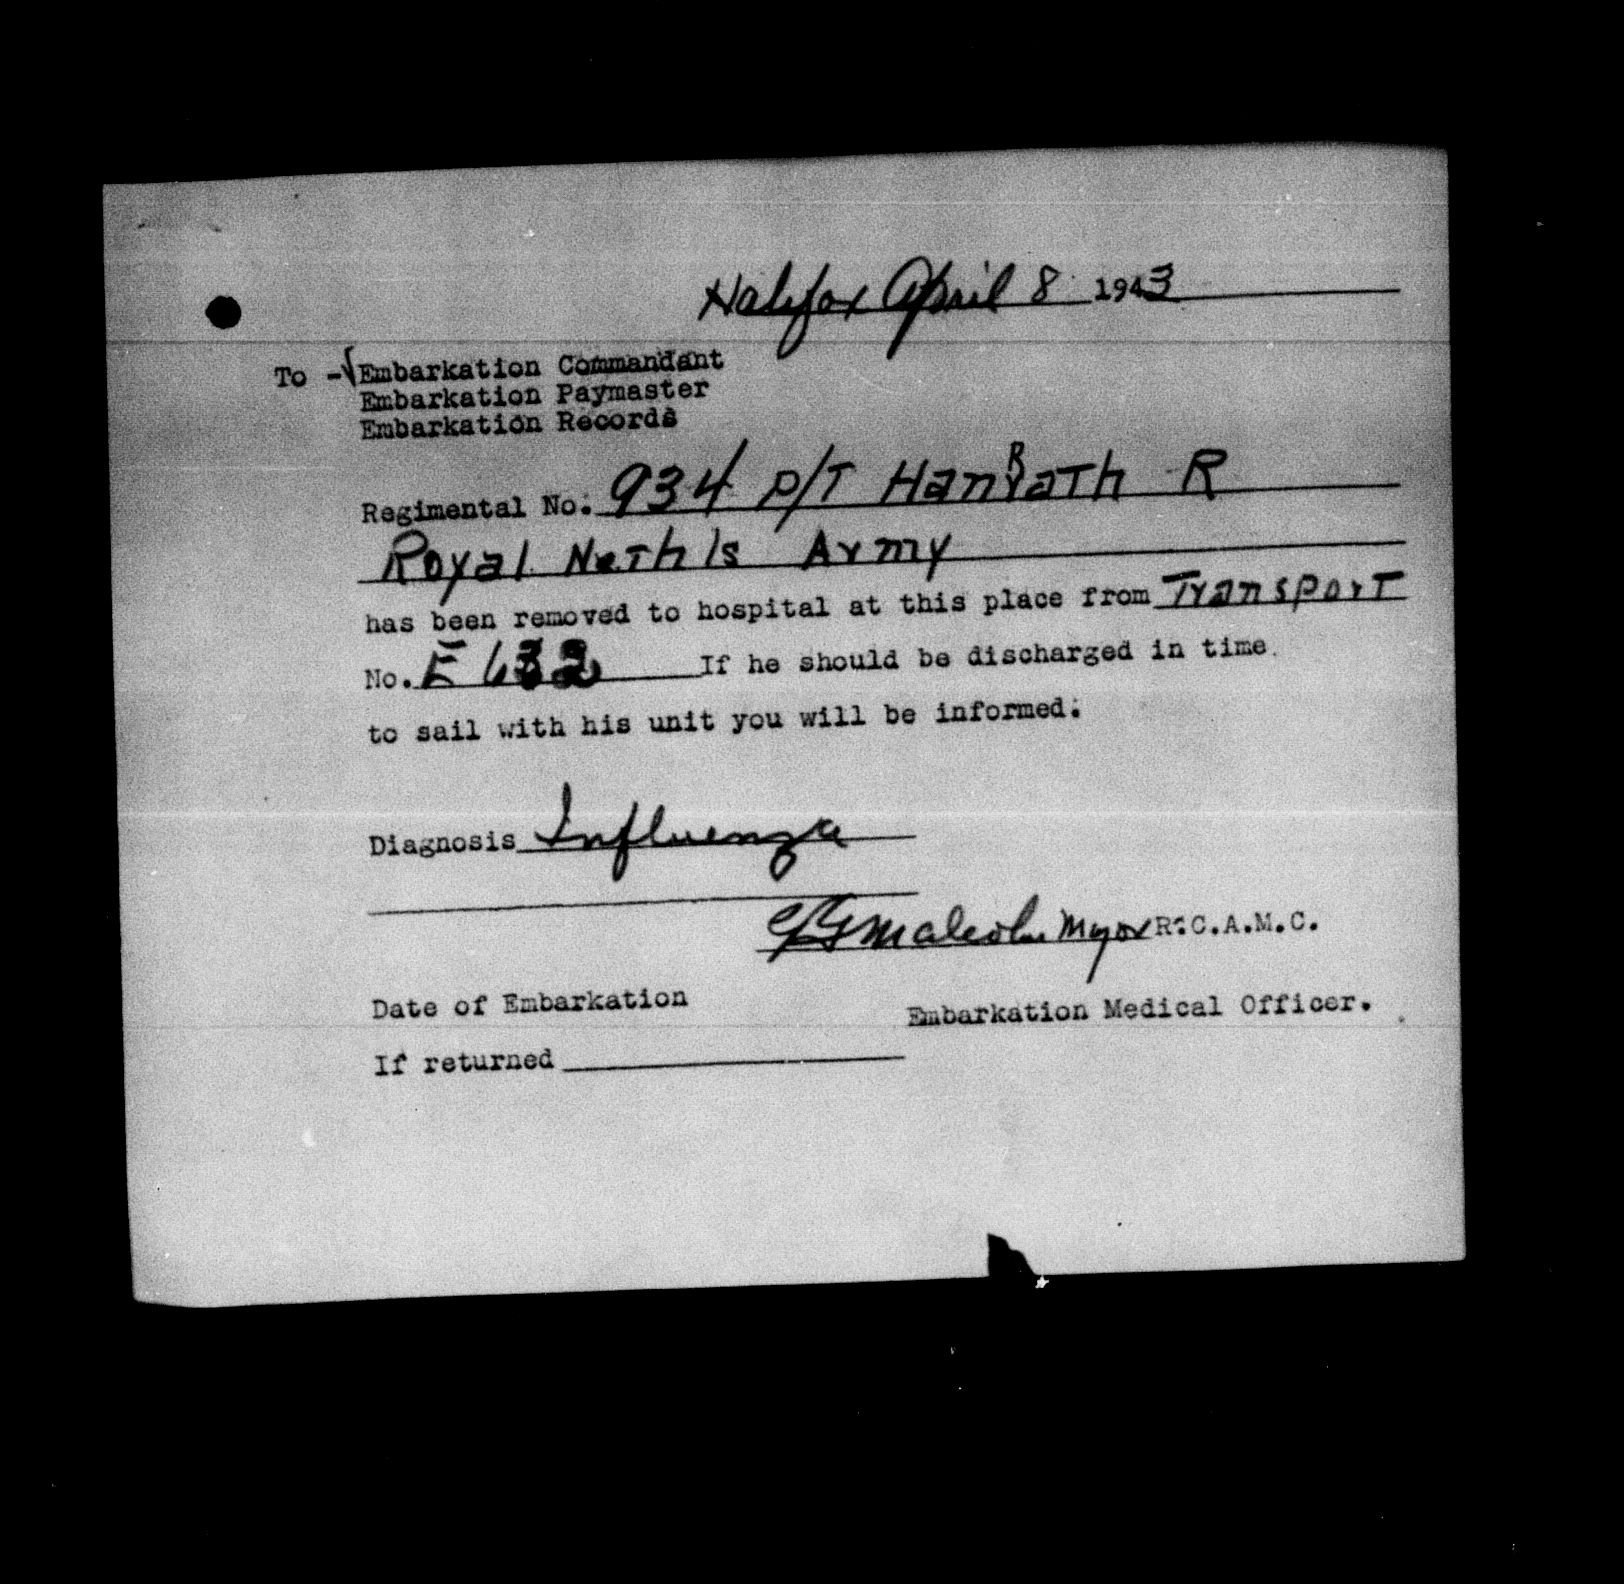 Halifax April 8 1943
To -√Embarkation Commandant
Embarkation Paymaster
Embarkation Records
Regimental No. 934 P/T HanRath R
Royal Nethls Army
has been removed to hospital at this place from Transport
No. E 632 If he should be discharged in time
to sail with his unit you will be informed.
Diagnosis Influenza
Malcolm Major R.C.A.M.C.
Date of Embarkation
Embarkation Medical Officer.
If returned